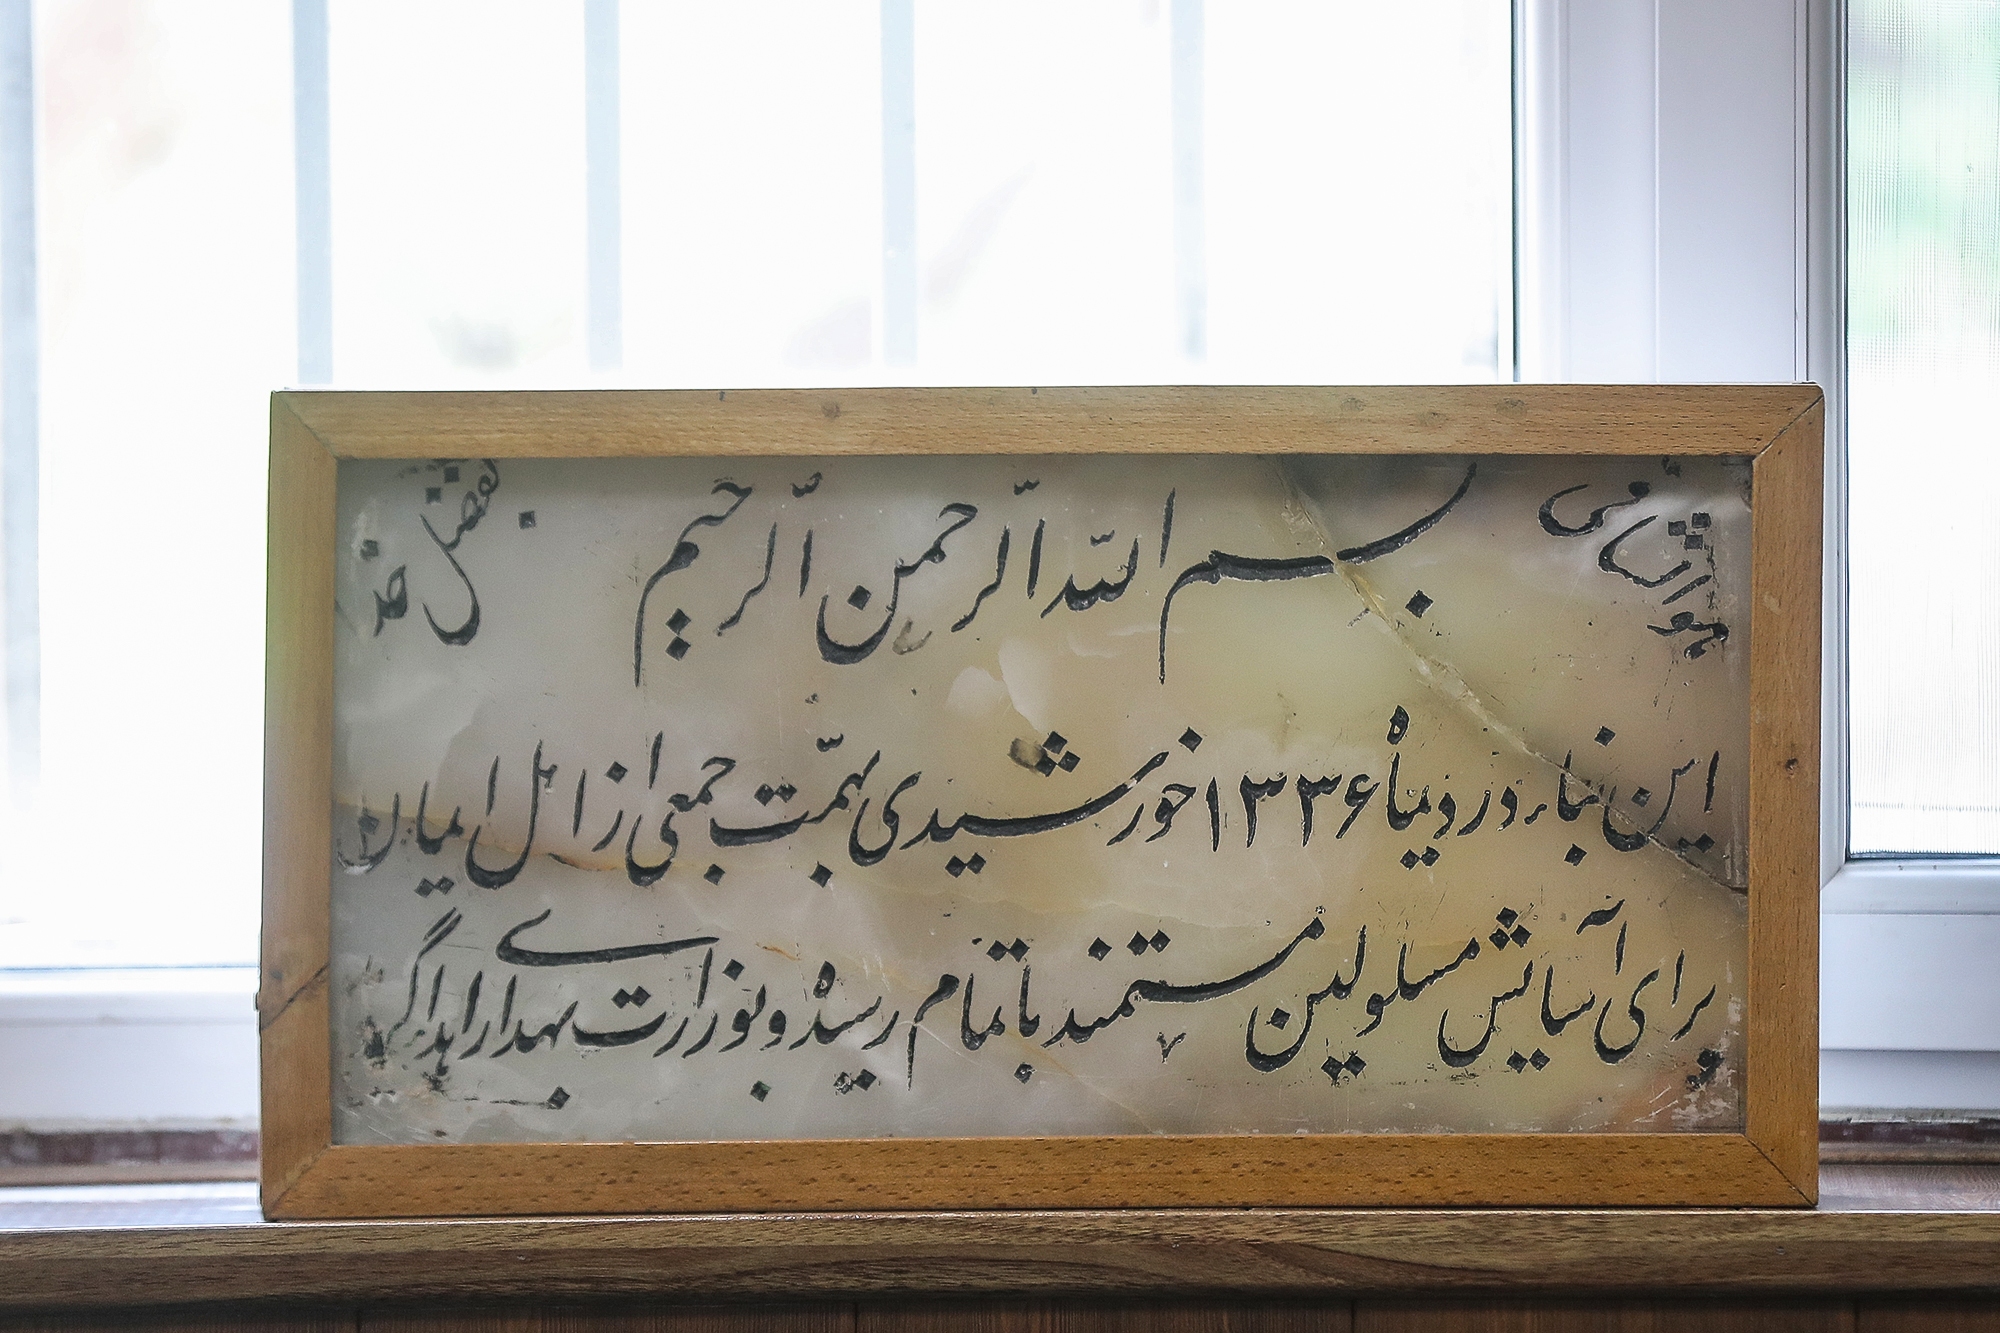 هوالشافی
بسم الله الرحمن الرحیم
بفضل خدا
این بناء در دیماه ۱۳۳۶ خورشیدی بهمّت جمعی از اهل ایمان
برای آسایش مسلولین مستمند باتمام رسیده و بوزارت بهداری اهدا گر